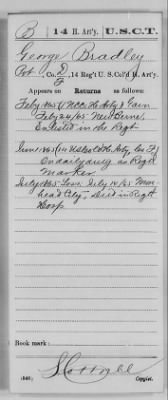 B 14 H. Art'y. U.S.C.T.
George Bradley
Pvt, Co. D
F, 14 Reg't U. S. Col'd H. Art'y.
Appears on
Returns as follows:
Feby 1865 (1 NCC Hv Arty)
Feby 24/65 New Berne,
Enlisted in the Regt
June 1865 (14 USCol Hv Arty Co F)
On daily duty as Regtl
Marker
July 1865 Loss, July 14/65 More-
head City, Died in Regtl
Hosp
Book mark:
(546) Copyist.